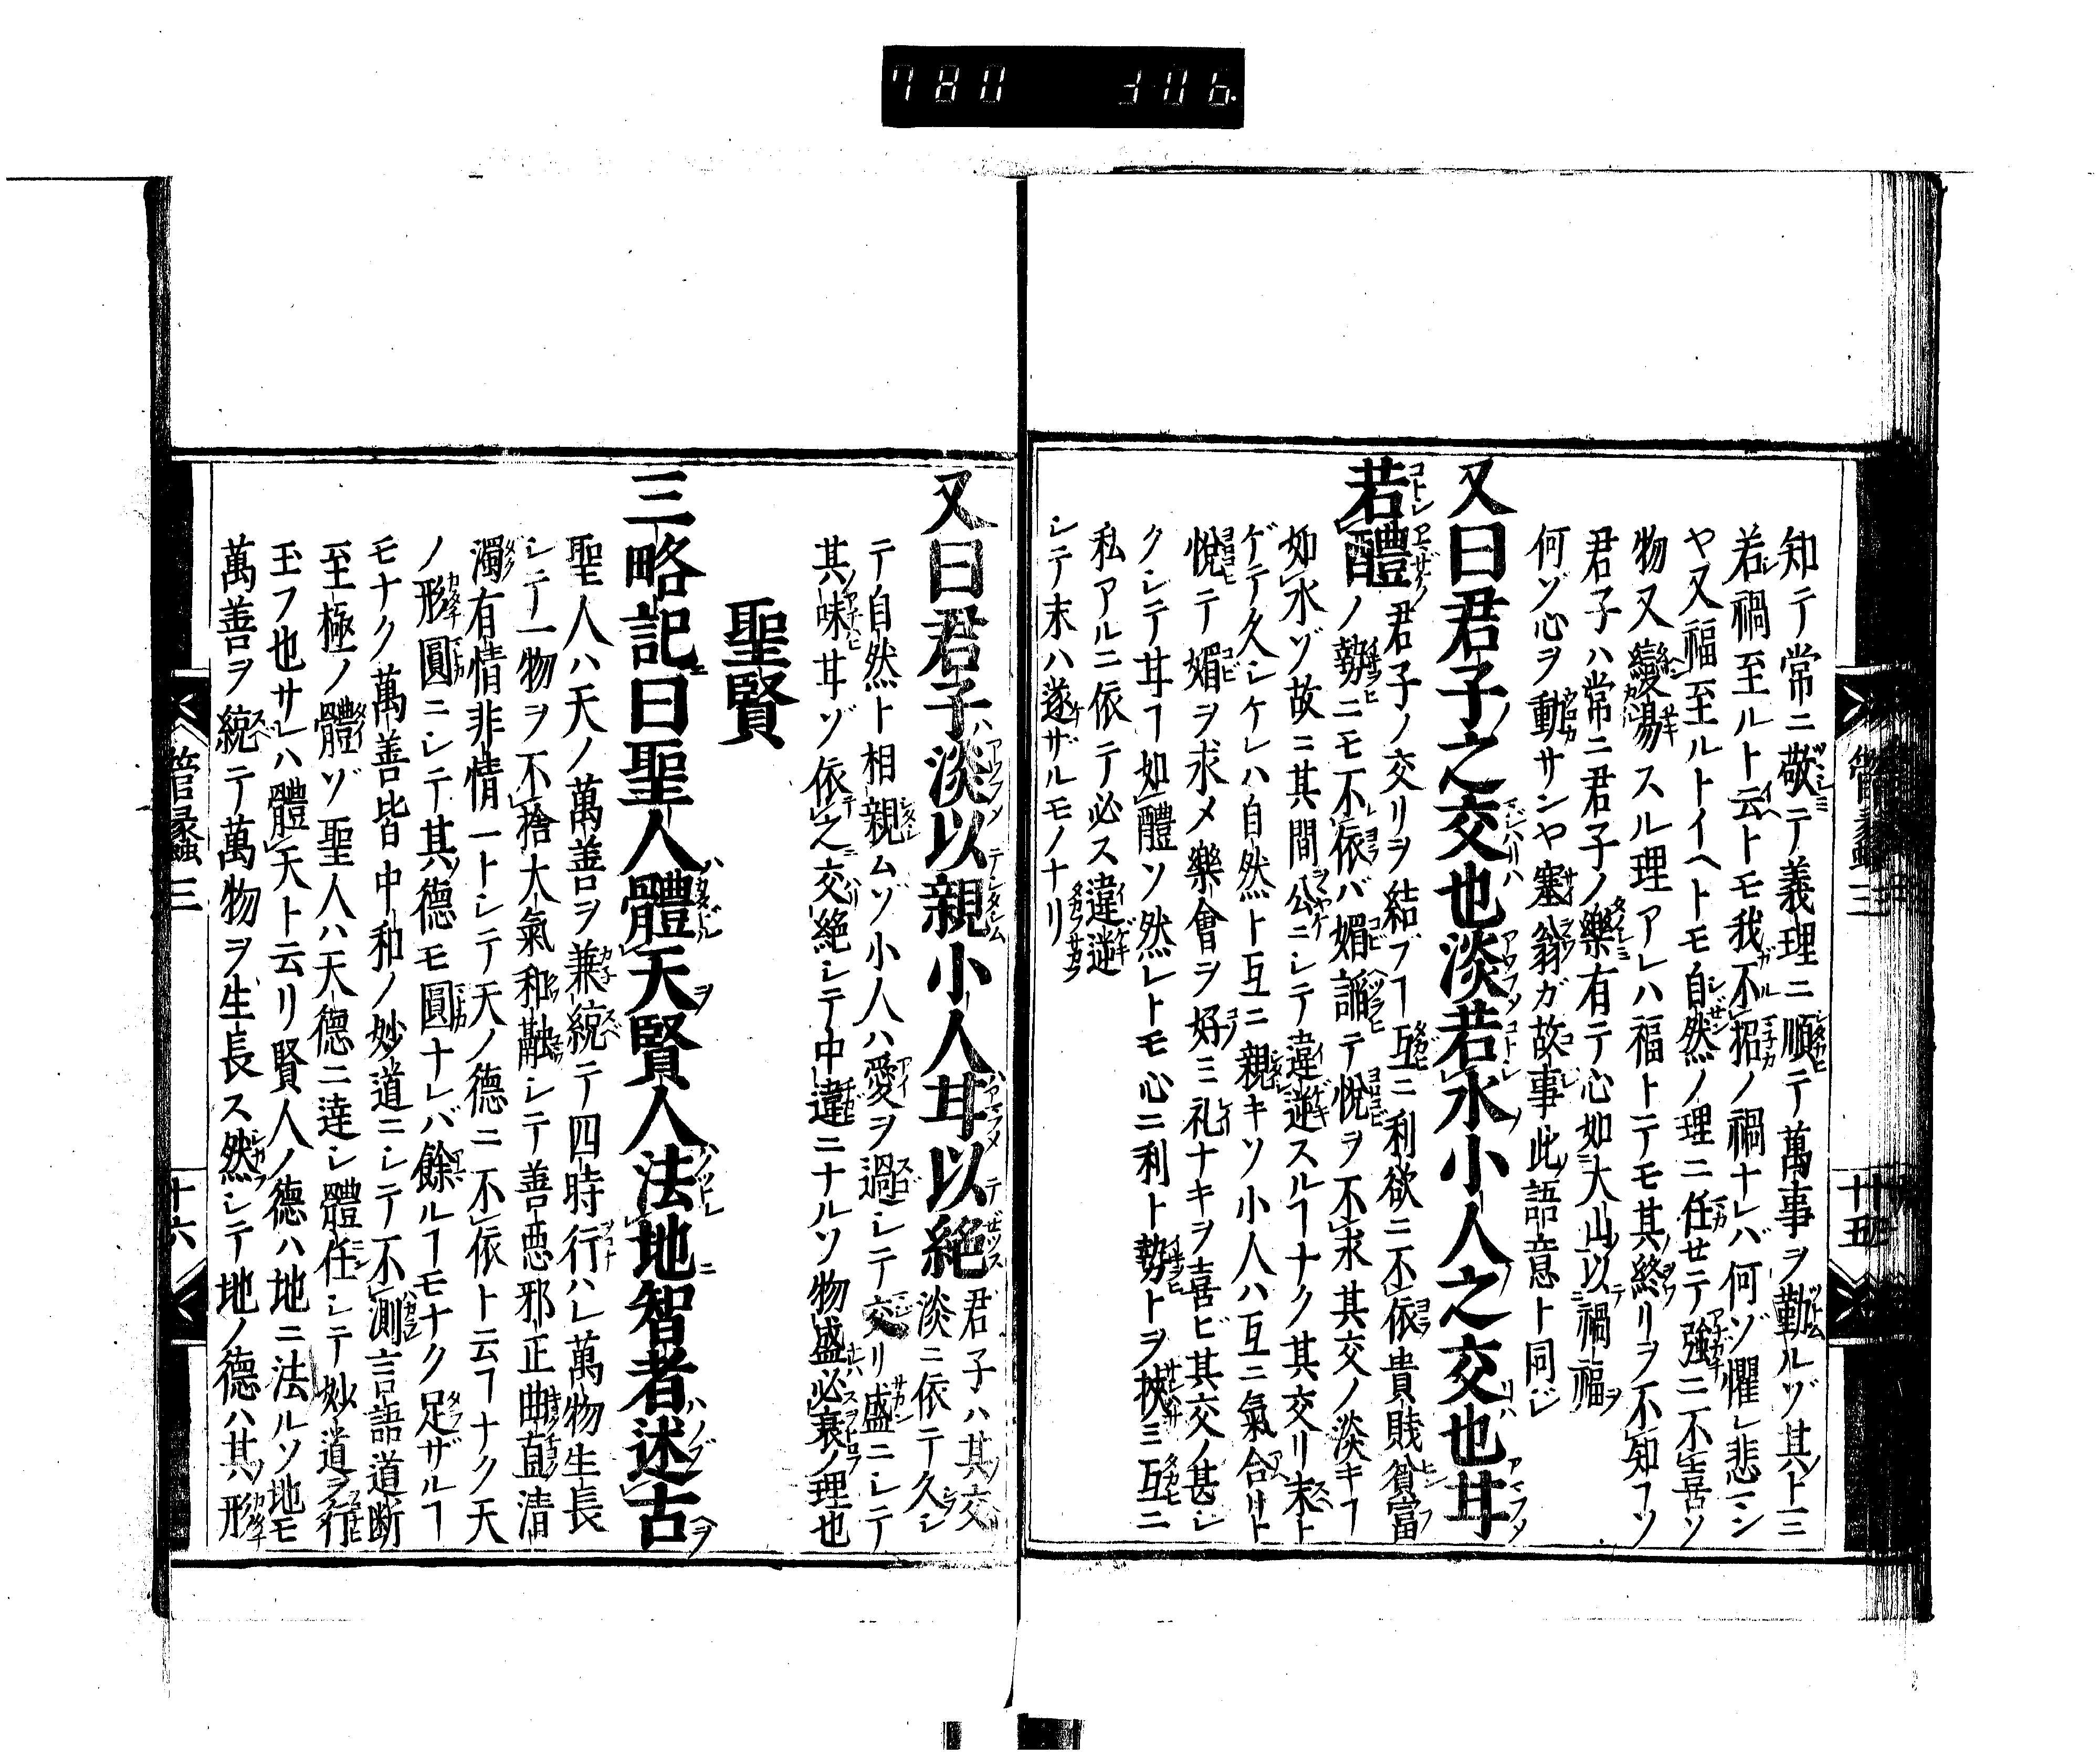 780 306
知テ常ニ敬テ義理ニ順テ萬事ヲ勤ルゾ其上ニ
若禍至ルト云トモ我不招ノ禍ナレバ何ゾ懼レ悲ニシ
ヤ又福至ルトイヘトモ自然ノ理ニ任セテ強ニ不喜ソ
物又變易スル理アレハ福トテモ其終リヲ不知ヿソ
君子ハ常ニ君子ノ樂有テ心如大山以禍福
何ゾ心ヲ動サンヤ塞翁ガ故事此語意ト同シ
又曰君子之交也淡若水小人之交也甘
若醴君子ノ交リヲ結ブヿ互ニ利欲ニ不依貴賤貧富
ノ勢ニモ不依バ媚謟テ悅ヲ不求其交ノ淡キヿ
如水ゾ故ニ其間公ニシテ違逆スルヿナク其交リ末ト
ゲテ久シケレハ自然ト互ニ親キソ小人ハ互ニ氣合リト
悅テ媚ヲ求メ樂會ヲ好ミ礼ナキヲ喜ビ其交ノ甚シ
クシテ甘ヿ如醴ソ然レトモ心ニ利ト勢トヲ挾ミ互ニ
私アルニ依テ必ス違逆
シテ末ハ遂ザルモノナリ
管蠡三
十五
又曰君子淡以親小人甘以絕君子ハ其交淡ニ依テ久シ
テ自然ト相親ムゾ小人ハ愛ヲ過シテ交リ盛ニシテ
其味甘ゾ依之交絕シテ中違ニナルソ物盛必衰ノ理也
聖賢
三略記曰聖人體天賢人法地智者述古
聖人ハ天ノ萬善ヲ兼統テ四時行ハレ萬物生長
シテ一物ヲ不捨大氣和融シテ善惡邪正曲直清
濁有情非情一トシテ天ノ德ニ不依ト云ヿナク天
ノ形圓ニシテ其德モ圓ナレバ餘ルヿモナク足ザルヿ
モナク萬善皆中和ノ妙道ニシテ不測言語道断
至極ノ體ゾ聖人ハ天德ニ達シ體任シテ妙道ヲ行
玉フ也サレハ體天ト云リ賢人ノ德ハ地ニ法ルソ地モ
萬善ヲ統テ萬物ヲ生長ス然シテ地ノ德ハ其形
管蠡三
十六